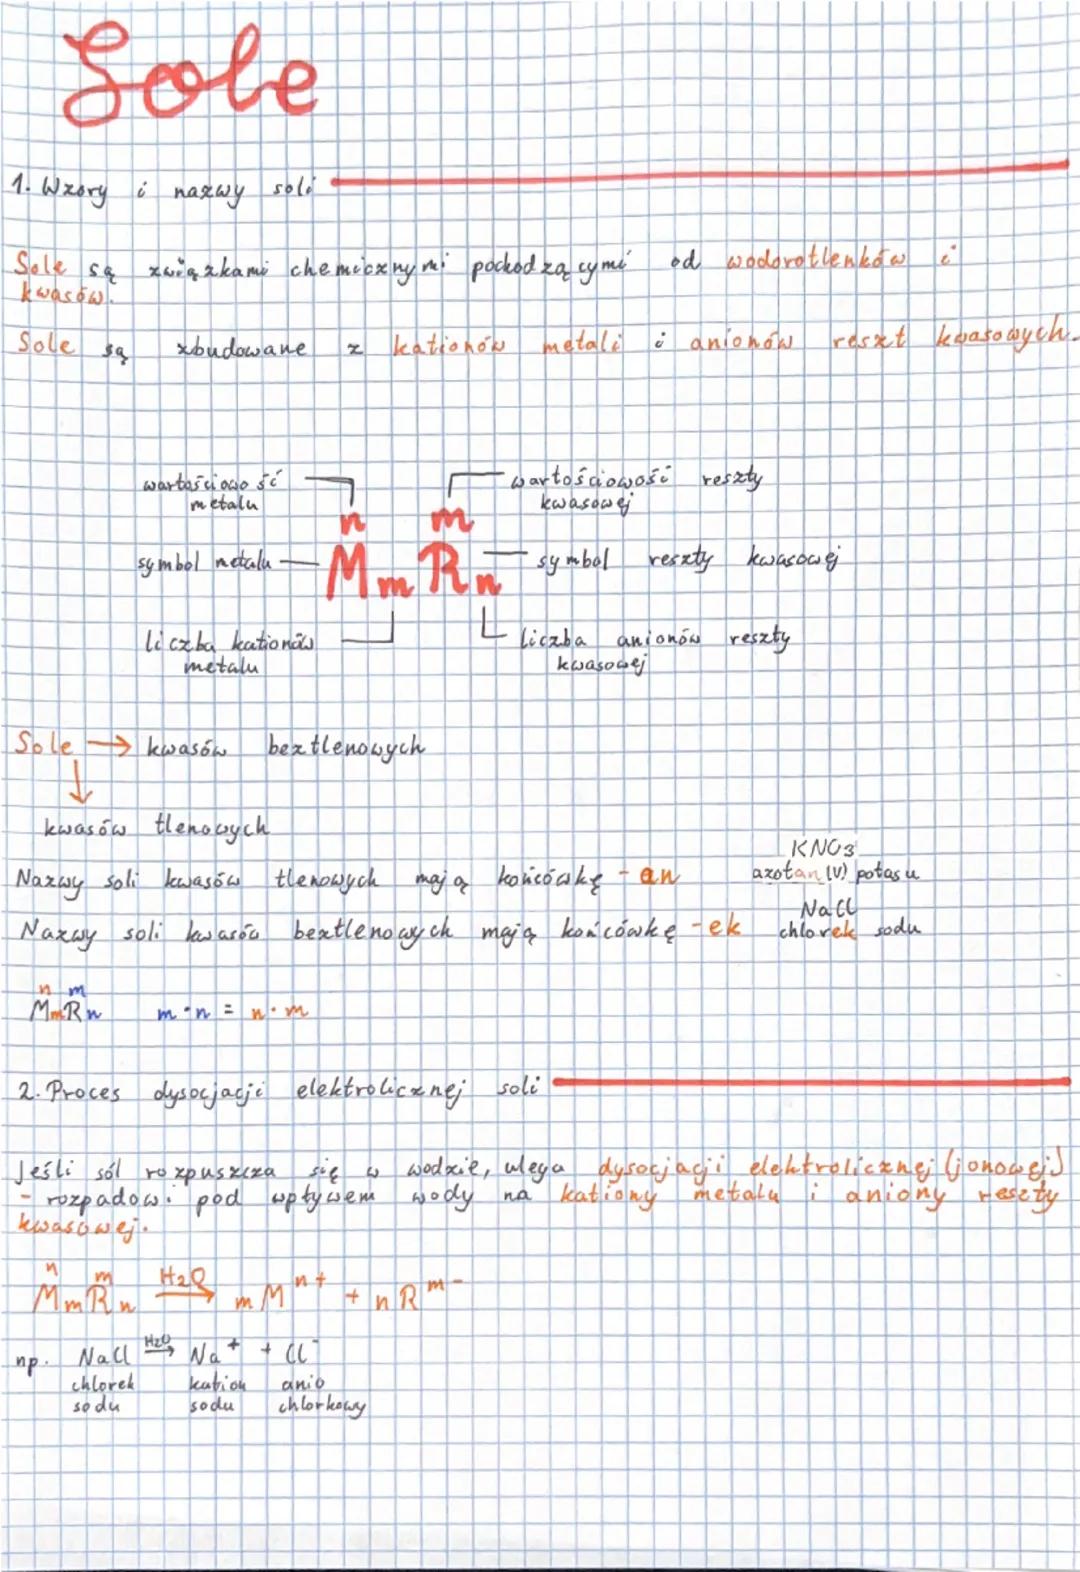 Sole
1. Wzory i nazwy soli
Sole są związkami chemicznymi pochodzącymi od wodorotlenków i
kwasów.
Sole są zbudowane z kationów metali i anionów reszt kwasowych.
wartościowość metalu
wartościowość reszty kwasowej
n m
symbol metalu MmRn symbol reszty kwasowej
liczba kationów metalu
liczba anionów reszty kwasowej
Sole → kwasów beztlenowych
↓
kwasów tlenowych
KNO3
Nazwy soli kwasów tlenowych mają końcówkę -an azotan (V) potasu
NaCl
Nazwy soli kwasów beztlenowych mają końcówkę -ek chlorek sodu
n m
MmRn m·n = n·m
2. Proces dysocjacji elektrolicznej soli
Jeśli sól rozpuszcza się w wodzie, ulega dysocjacji elektrolicznej (jonowej)
- rozpadowi pod wpływem wody na kationy metalu i aniony reszty
kwasowej.
n m
MmRn H2O→ mMn+ + nRm-
np. NaCl H2O→ Na+ + Cl-
chlorek kation anio
sodu sodu chlorkowy